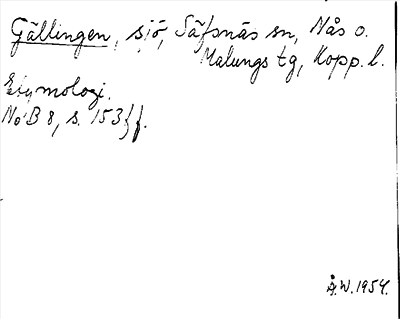 Gällingen, sjö, Säfsnäs sn, Nås o.
Malungs tg, Kopp. l.
Etymologi.
NoB 8, s. 153 f.
Å.W. 1954.